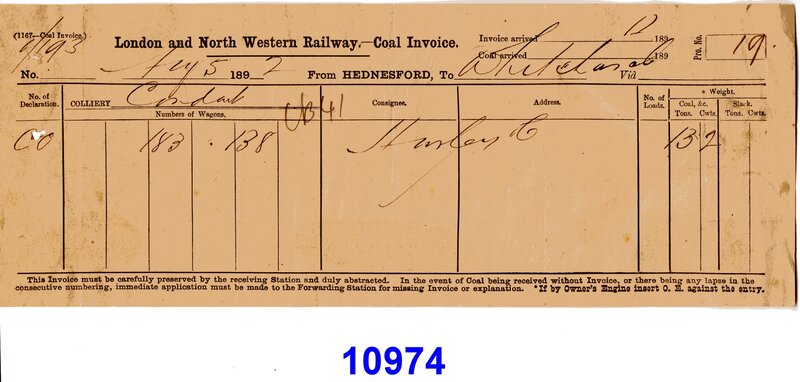 (1167—Coal Invoice.)
London and North Western Railway.—Coal Invoice.
Invoice arrived 12 189
Coal arrived 189
Pro. No. 19
No. 5 1892 From HEDNESFORD, To
Via
No. of Declaration.
COLLIERY
Numbers of Wagons.
Consignee.
Address.
No. of Loads.
* Weight.
Coal, &c. Tons. Cwts.
Slack. Tons. Cwts.
CO 183 . 138 13 2
This Invoice must be carefully preserved by the receiving Station and duly abstracted. In the event of Coal being received without Invoice, or there being any lapse in the
consecutive numbering, immediate application must be made to the Forwarding Station for missing Invoice or explanation. *If by Owner's Engine insert O. E. against the entry.
10974